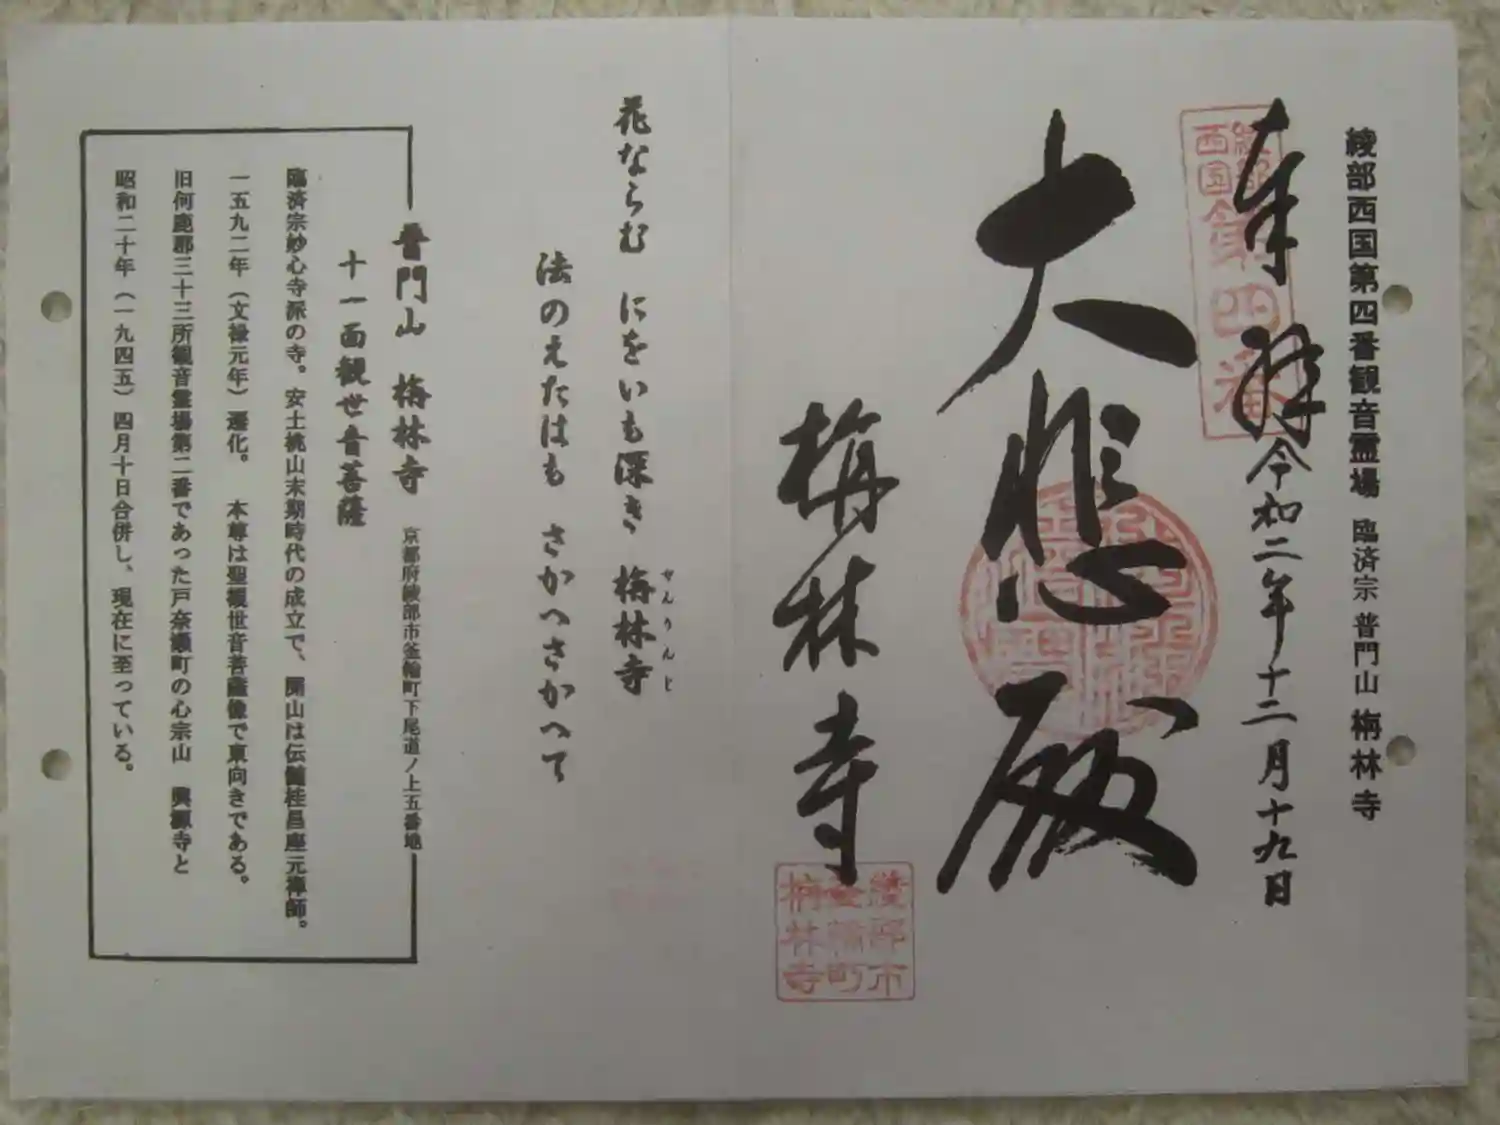 綾部西国第四番観音霊場 臨済宗 普門山 栴林寺
綾部西国第四番
奉拝 令和二年十二月十九日
大悲殿
栴林寺
綾部市
釜輪町
栴林寺
花ならむ にをいも深き 梅林寺
せんりんじ
法のえたはも さかへさかへて
普門山 梅林寺 京都府綾部市釜輪町下尾道ノ上五番地
十一面観世音菩薩
臨済宗妙心寺派の寺。安土桃山末期時代の成立で、開山は伝髄桂昌座元禅師。
一五九二年（文禄元年）遷化。 本尊は聖観世音菩薩像で東向きである。
旧何鹿郡三十三所観音霊場第二番であった戸奈瀬町の心宗山 興源寺と
昭和二十年（一九四五）四月十日合併し、現在に至っている。